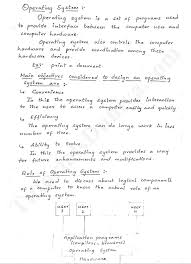 Operating System :-
Operating system is a set of programs used
to provide interface between the computer user and
computer hardware.
Operating system also controls the computer
hardware and provide coordination among these
hardware devices.
Eg:- print a document.
Main objectives considered to design an operating
System are :-
↳ Convenience
In this the operating system provides information
to the user to access a computer easily and quickly
↳ Efficiency
The operating system can do large work in less
number of time.
↳ Ability to Evolve
In this the operating system provides a way for
future enhancements and modifications.
Role of Operating System :-
We need to discuss about logical components
of a computer to know the actual role of an
operating system
user 1 user 2 user n
Application programs
(Compilers, browsers)
Operating System
Hardware